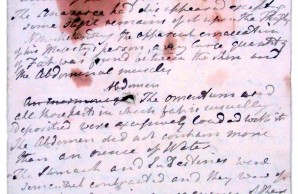 The Anasarca had disappeared except
some slight remains of it upon the Thighs
Notwithstanding the apparent emaciation
of his Majesty's person, a very large quantity
of Fat was found between the skin and
the Abdominal muscles
Abdomen
The omentum and
all those parts in which fat is usually
deposited were excessively loaded with it
The Abdomen did not contain more
than an ounce of Water
The Stomach and Intestines were
somewhat contracted and they were of